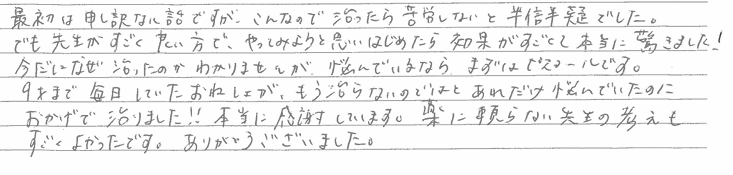 最初は申し訳ない話ですが、こんなので治ったら苦労しないと半信半疑でした。
でも先生がすごく良い方で、やってみようと思いはじめたら効果がすごくて本当に驚きました!
今だになぜ治ったのかわかりませんが、悩んでいるなら まずはビスコールです。
9才まで毎日していたおねしょが、もう治らないのではとあれだけ悩んでいたのに
おかげで治りました!! 本当に感謝しています。薬に頼らない先生の考えも
すごくよかったです。ありがとうございました。